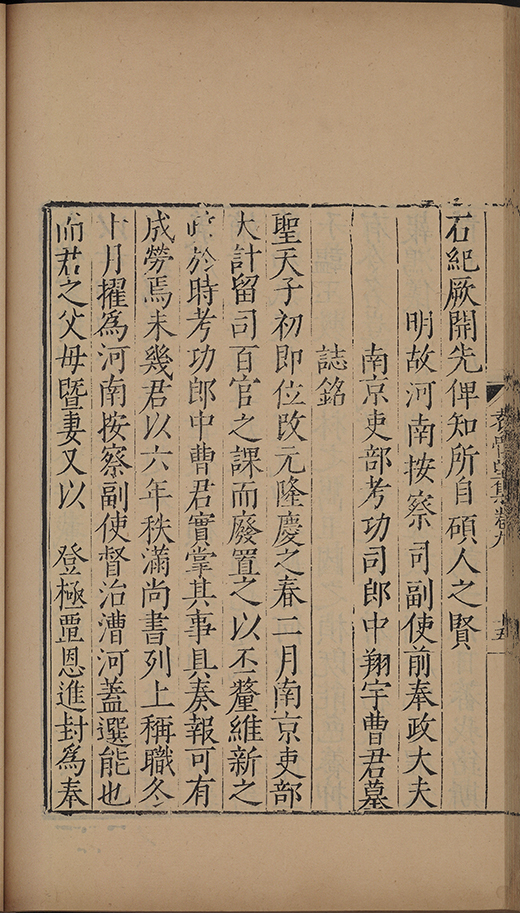 袁魯望集卷九
十五
石紀厥開先俾知所自碩人之賢
明故河南按察司副使前奉政大夫
南京吏部考功司郎中翔宇曹君墓
誌銘
聖天子初即位改元隆慶之春二月南京吏部
大計留司百官之課而廢置之以丕釐維新之
於時考功郎中曹君實掌其事具奏報可有
成勞焉未幾君以六年秩滿尚書列上稱職冬
十月擢爲河南按察副使督治漕河蓋選能也
而君之父母暨妻又以　登極覃恩進封爲奉